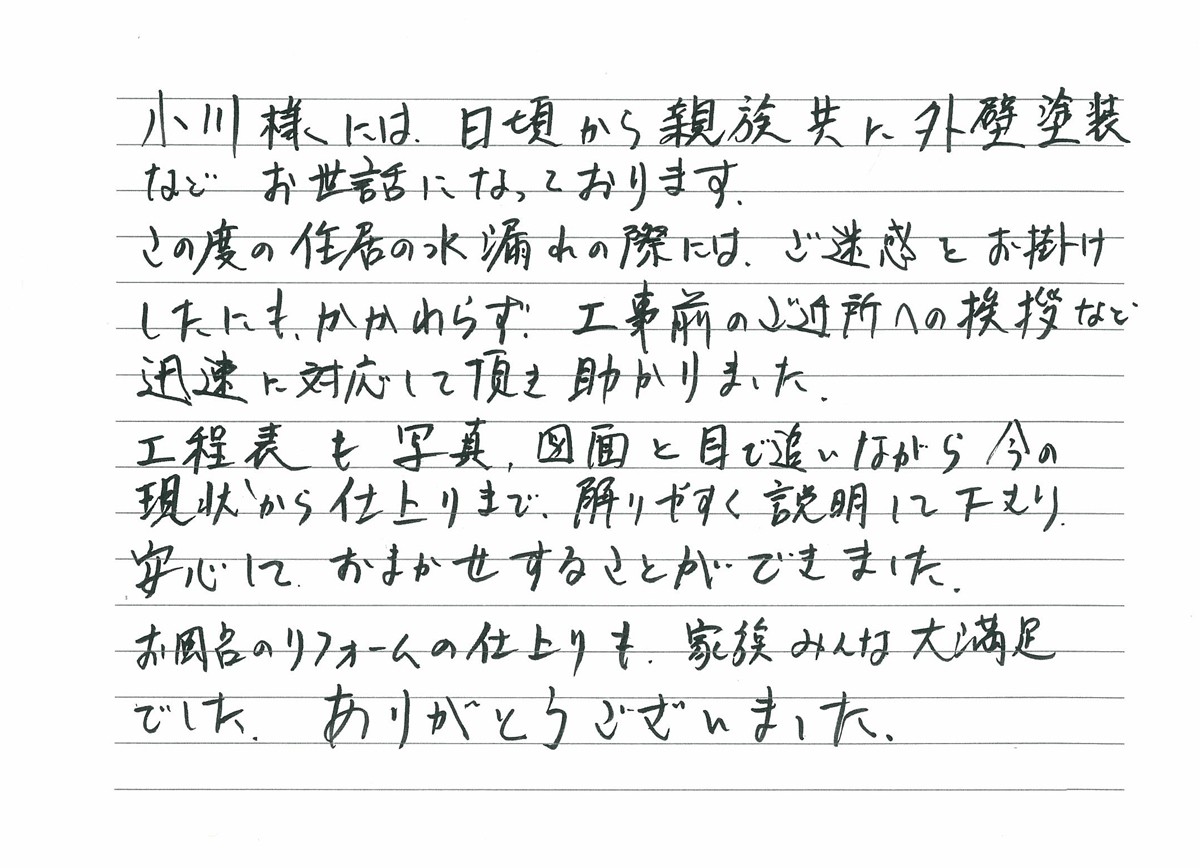 小川様には、日頃から親族共に外壁塗装
など お世話になっております。
この度の住居の水漏れの際には、ご迷惑をお掛け
したにも、かかわらず、工事前のご近所への挨拶など
迅速に対応して頂き助かりました。
工程表も写真、図面と目で追いながら今の
現状から仕上りまで、解りやすく説明して下さり、
安心して、おまかせすることができました。
お風呂のリフォームの仕上りも、家族みんな大満足
でした。ありがとうございました。